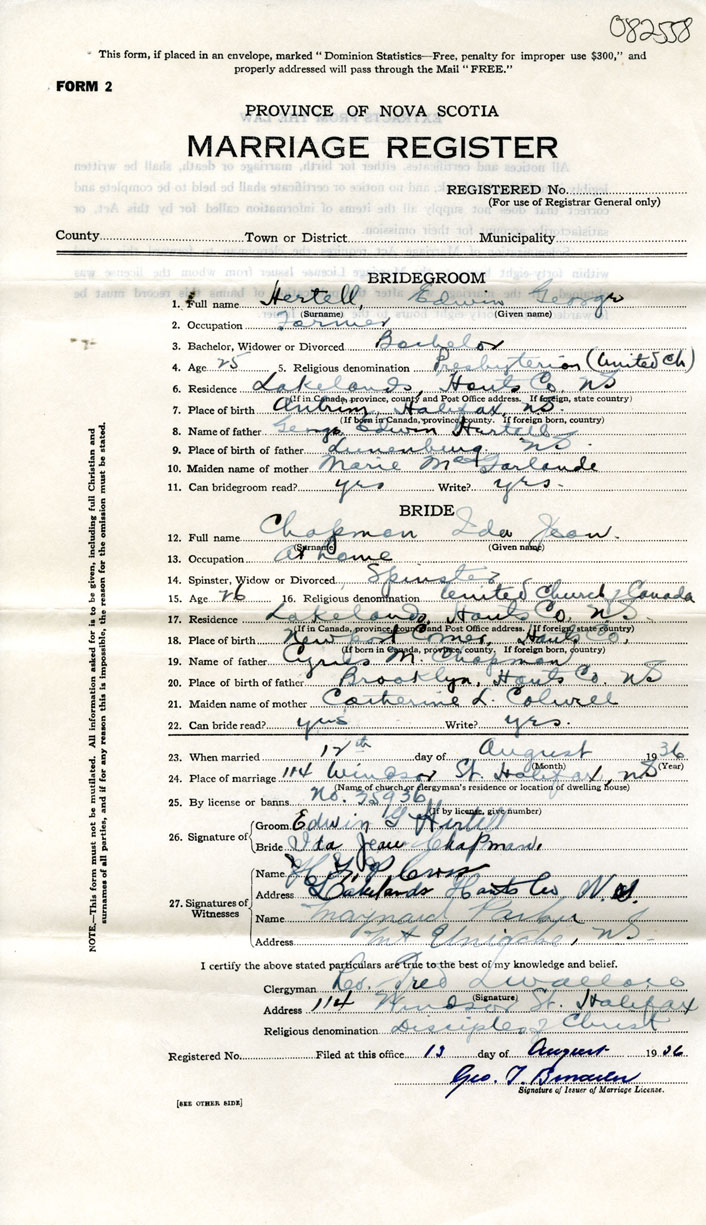 082558
This form, if placed in an envelope, marked "Dominion Statistics—Free, penalty for improper use $300," and
properly addressed will pass through the Mail "FREE."
FORM 2
PROVINCE OF NOVA SCOTIA
MARRIAGE REGISTER
REGISTERED No.
(For use of Registrar General only)
County Town or District Municipality
BRIDEGROOM
1. Full name Hertell, Edwin George
(Surname) (Given name)
2. Occupation Farmer
3. Bachelor, Widower or Divorced Bachelor
4. Age 25 5. Religious denomination Presbyterian (United Ch)
6. Residence Lakelands, Hants Co. NS
(If in Canada, province, county and Post Office address. If foreign, state country)
7. Place of birth Antrim, Halifax, NS.
(If born in Canada, province, county. If foreign born, country)
8. Name of father George Edwin Hertell
9. Place of birth of father Lunenburg NS
10. Maiden name of mother Marie
11. Can bridegroom read? yes Write? yes.
BRIDE
12. Full name Chapman Ida Jean.
(Surname) (Given name)
13. Occupation At home
14. Spinster, Widow or Divorced Spinster
15. Age 26 16. Religious denomination United Church of Canada
17. Residence Lakelands, Hants Co, NS.
(If in Canada, province, county and Post Office address. If foreign, state country)
18. Place of birth Corner, Hants Co,
(If born in Canada, province, county. If foreign born, country)
19. Name of father Cyrus M. Chapman
20. Place of birth of father Brooklyn, Hants Co. NS
21. Maiden name of mother Catherine L. Colwell
22. Can bride read? yes Write? yes.
23. When married 12th day of August 1936
(Month) (Year)
24. Place of marriage 114 Windsor St. Halifax, NS
(Name of church or clergyman's residence or location of dwelling house)
25. By license or banns No. 35936
(If by license, give number)
26. Signature of Groom Edwin G Hirtell
Bride Ida Jean Chapman.
27. Signatures of Witnesses
Name Cross
Address Lakelands Hants Co N.S.
Name Maynard Parker
Address Mt Uniacke, NS.
I certify the above stated particulars are true to the best of my knowledge and belief.
Clergyman Fred Wallace
(Signature)
Address 114 Windsor St. Halifax
Religious denomination Disciples of Christ
Registered No. Filed at this office 13 day of August 1936
Geo. T.
Signature of Issuer of Marriage License.
[SEE OTHER SIDE]
NOTE.—This form must not be mutilated. All information asked for is to be given, including full Christian and
surnames of all parties, and if for any reason this is impossible, the reason for the omission must be stated.